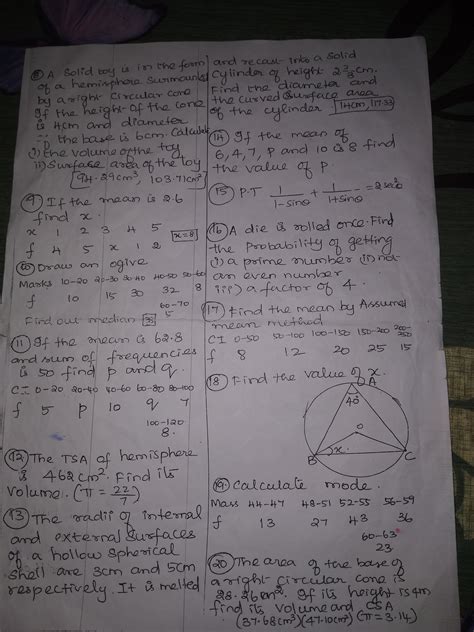 ⑧ A Solid toy is in the form
of a hemisphere surmounted
by a right circular cone
If the height of the cone
is 4cm and diameter
of the base is 6cm. Calculate
i) the volume of the toy
ii) Surface area of the toy
94.29cm³, 103.71cm²
⑨ If the mean is 2.6
find x.
x 1 2 3 4 5
f 4 5 x 1 2 x=8
⑩ Draw an ogive
Marks 10-20 20-30 30-40 40-50 50-60
f 10 15 30 32 8
60-70
5
Find out median
⑪ If the mean is 62.8
and sum of frequencies
is 50 find p and q.
CI 0-20 20-40 40-60 60-80 80-100
f 5 p 10 q 7
100-120
8.
⑫ The TSA of hemisphere
is 462cm². Find its
volume. (π = 22/7)
⑬ The radii of internal
and external surfaces
of a hollow spherical
shell are 3cm and 5cm
respectively. It is melted
and recast into a solid
cylinder of height 2 2/3 cm.
Find the diameter and
the curved surface area
of the cylinder 14cm, 117.33
⑭ If the mean of
6, 4, 7, P and 10 is 8 find
the value of p.
⑮ P.T 1/1-sinθ + 1/1+sinθ = 2sec²θ
⑯ A die is rolled once. Find
the probability of getting
i) a prime number
an even number
iii) a factor of 4.
⑰ Find the mean by Assumed
mean method
CI 0-50 50-100 100-150 150-200 200-250
f 8 12 20 25 15
⑱ Find the value of x.
A
40
O
B x C
⑲ Calculate mode.
Mass 44-47 48-51 52-55 56-59
f 13 27 43 36
60-63
23
⑳ The area of the base of
a right circular cone is
28.26m². If its height is 4m
find its volume and CSA
(37.68cm³)(47.10cm²)(π=3.14)